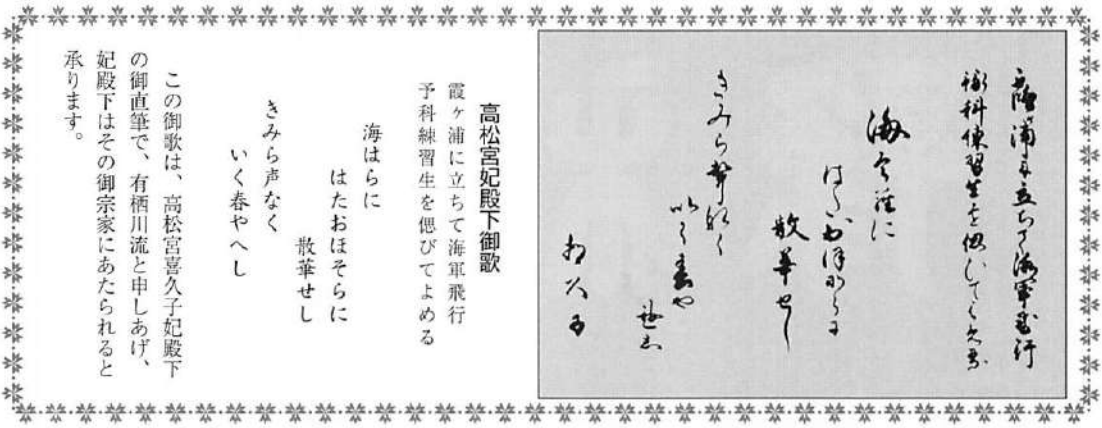 霞浦に立ちて海軍飛行
豫科練習生を偲びてよめる
海はらに
はたおほそらに
散華せし
きみら聲なく
いく春や
へし
喜久子
高松宮妃殿下御歌
霞ヶ浦に立ちて海軍飛行
予科練習生を偲びてよめる
海はらに
はたおほそらに
散華せし
きみら声なく
いく春やへし
この御歌は、高松宮喜久子妃殿下
の御直筆で、有栖川流と申しあげ、
妃殿下はその御宗家にあたられると
承ります。